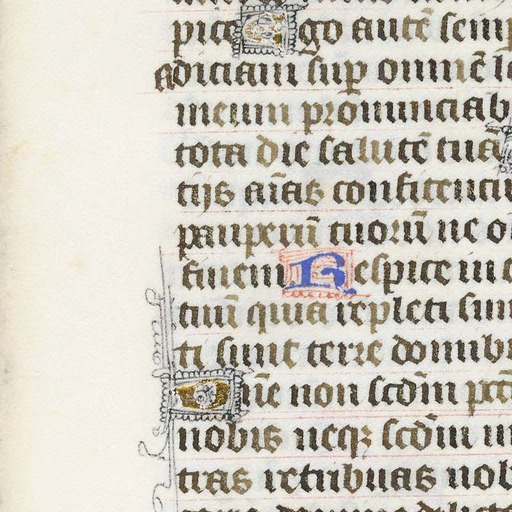 go autē semp
adiciam sup omnē l
meum pronunciab
tota die salutē tua
tijs aīas confitenciu
pauperū tuorū ne o
finem Respice in
tuū quia repleti sun
ti sunt terre domib
Dñe non scdm pcc
nobis neqz scdm in
tias retribuas nob